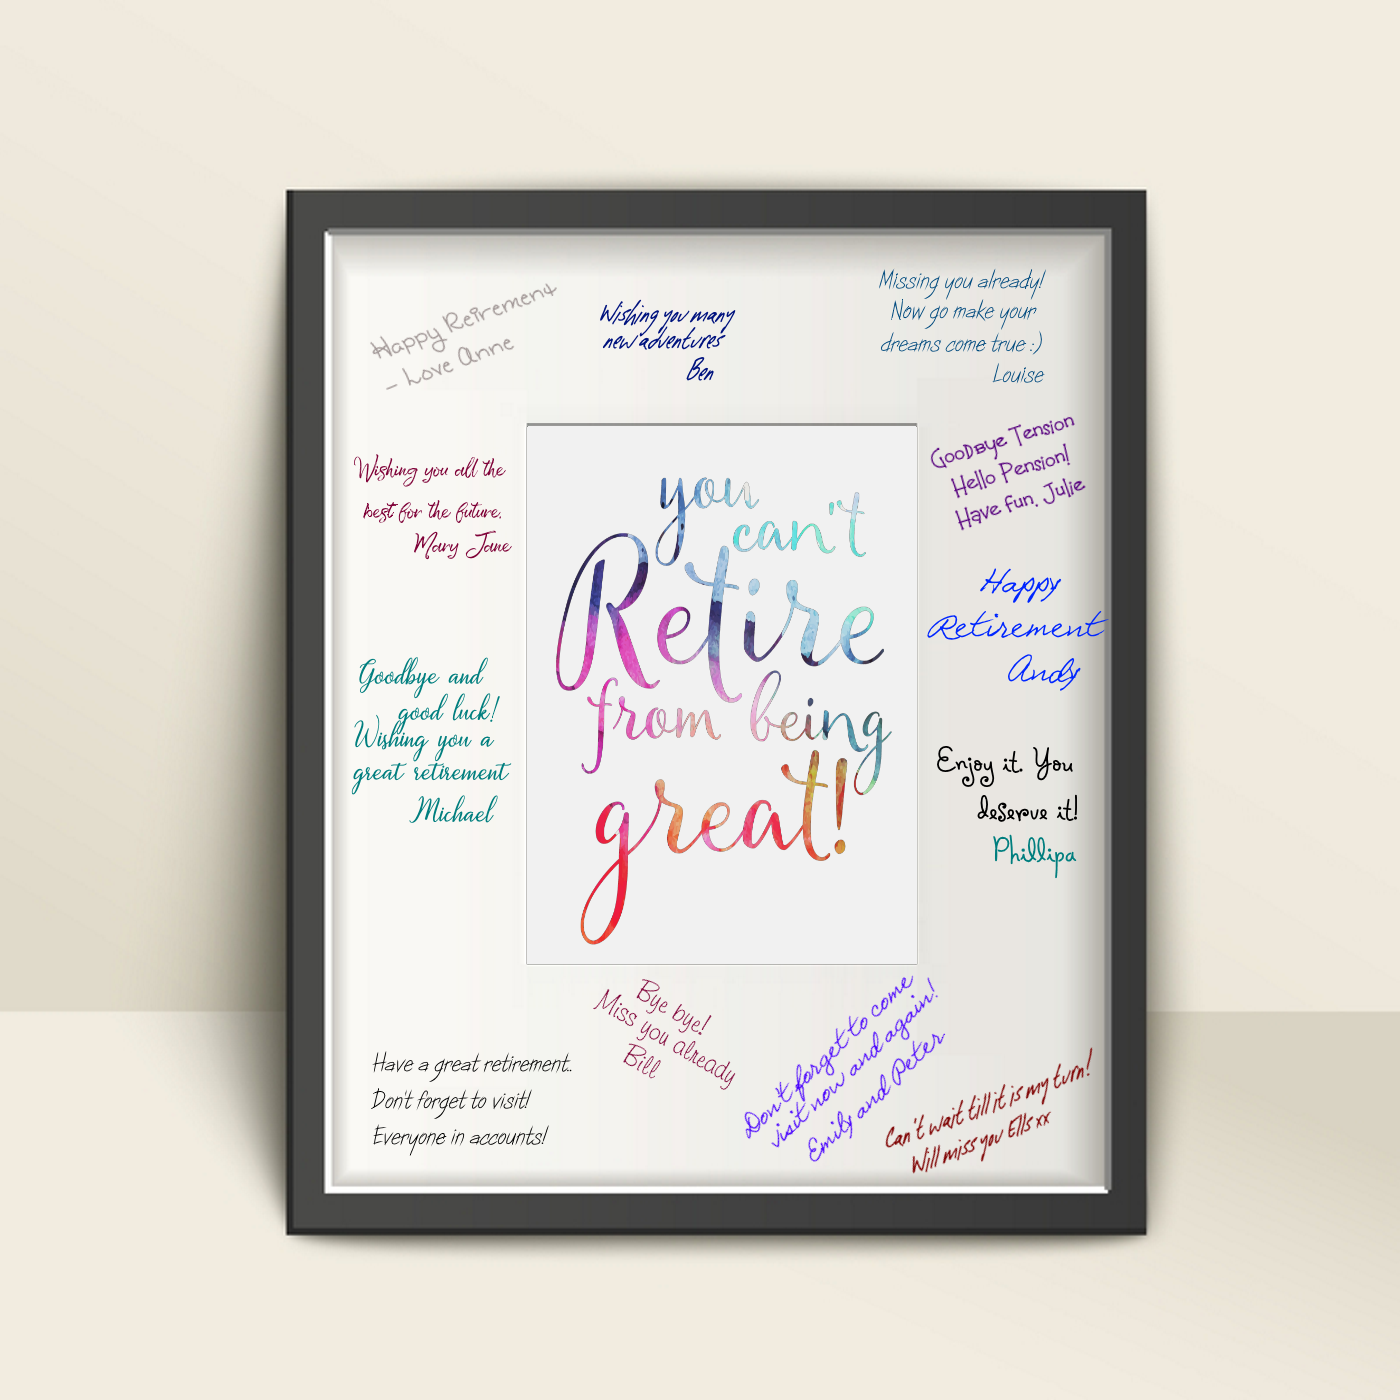 Happy Retirement
- Love Anne
Wishing you many
new adventures
Ben
Missing you already!
Now go make your
dreams come true :)
Louise
Wishing you all the
best for the future.
Mary Jane
Goodbye Tension
Hello Pension!
Have fun. Julie
you
can't
Retire
from being
great!
Happy
Retirement
Andy
Goodbye and
good luck!
Wishing you a
great retirement
Michael
Enjoy it. You
deserve it!
Phillipa
Have a great retirement.
Don't forget to visit!
Everyone in accounts!
Bye bye!
Miss you already
Bill
Don't forget to come
visit now and again!
Emily and Peter
Can't wait till it is my turn!
Will miss you Ells xx